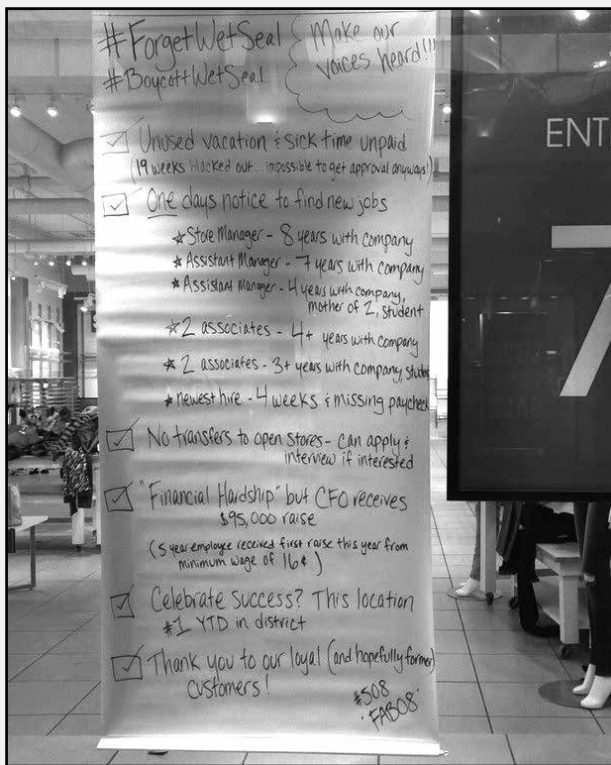 #ForgetWetSeal
#BoycottWetSeal
Make our
voices heard!!!
Unused vacation & sick time unpaid
(19 weeks blacked out... impossible to get approval anyways!)
One days notice to find new jobs
★Store Manager - 8 years with company
★Assistant Manager - 7 years with company
★Assistant Manager - 4 years with company,
mother of 2, student
★2 associates - 4+ years with company
★2 associates - 3+ years with company,
★newest hire - 4 weeks & missing paycheck
No transfers to open stores - can apply &
interview if interested
"Financial Hardship" but CFO receives
$95,000 raise
(5 year employee received first raise this year from
minimum wage of 16¢)
Celebrate success? This location
#1 YTD in district
Thank you to our loyal (and hopefully former)
customers!
#508
FABO8
ENTI
7